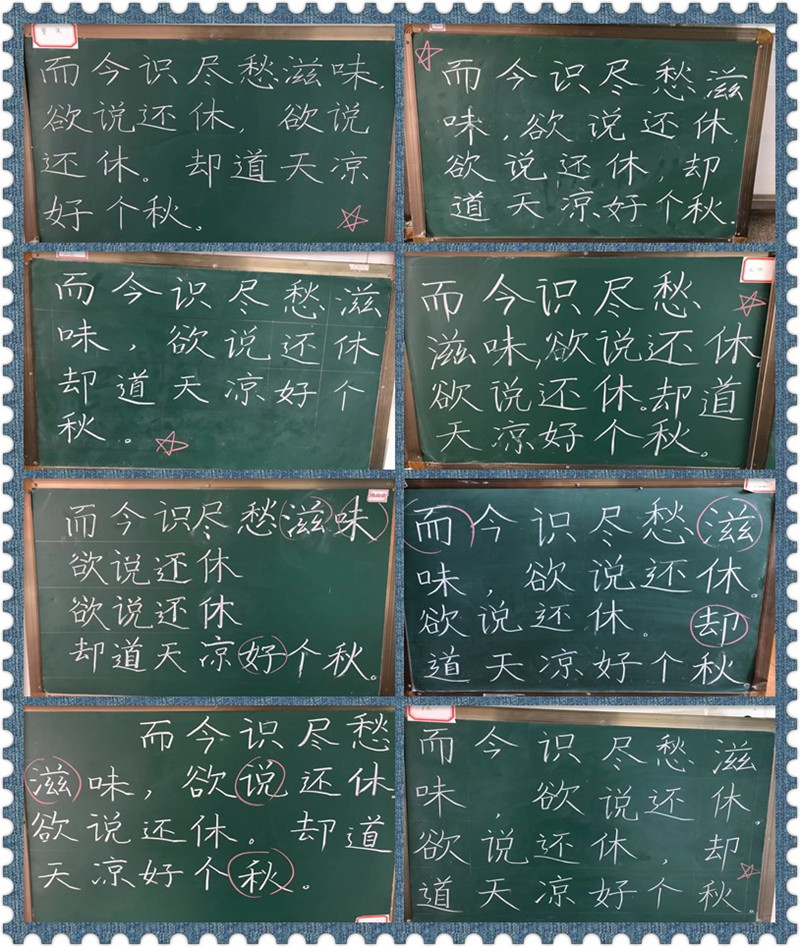 而今识尽愁滋味，
欲说还休，欲说
还休。却道天凉
好个秋。
而今识尽愁滋
味，欲说还休，
欲说还休，却
道天凉好个秋。
而今识尽愁滋
味，欲说还休
却道天凉好个
秋。
而今识尽愁
滋味，欲说还休，
欲说还休。却道
天凉好个秋。
而今识尽愁滋味
欲说还休
欲说还休
却道天凉好个秋。
而今识尽愁滋
味，欲说还休。
欲说还休。却
道天凉好个秋。
而今识尽愁
滋味，欲说还休
欲说还休。却道
天凉好个秋。
而今识尽愁滋
味，欲说还休。
欲说还休，却
道天凉好个秋